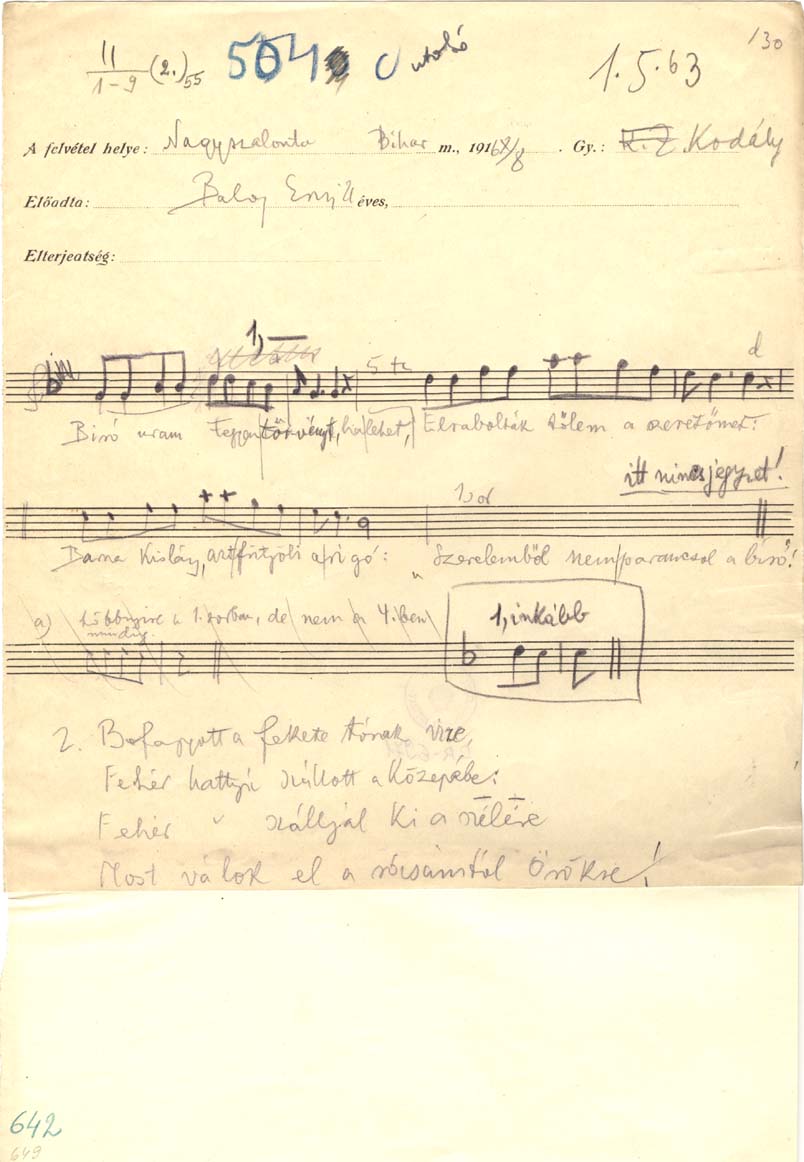 130
II
1-9 (2.) 55 504 utolsó 1.5.63
A felvétel helye: Nagyszalonta Bihar m., 191 Gy.: K. Z. Kodály
Előadta: Balog éves,
Elterjedtség:
1,
d
Biró uram tegyen törvényt, ha lehet, Elrabolták tőlem a szeretőmet:
itt nincs jegyzet!
1. sor
Barna kislány, azt fütyöli a rigó: Szerelemből nem parancsol a biró!
a) többnyire a 1. sorban, de nem a 4.ben
mindig.
1, inkább
2. Befagyott a fekete tónak vize,
Fehér hattyú szállott a közepébe:
Fehér " szálljál ki a szélére
Most válok el a rózsámtól örökre!
642
649